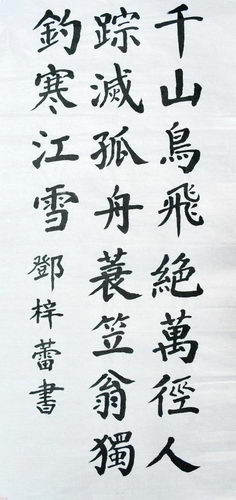 千山鳥飛絶萬徑人
踪滅孤舟蓑笠翁獨
釣寒江雪
鄧梓蕾書